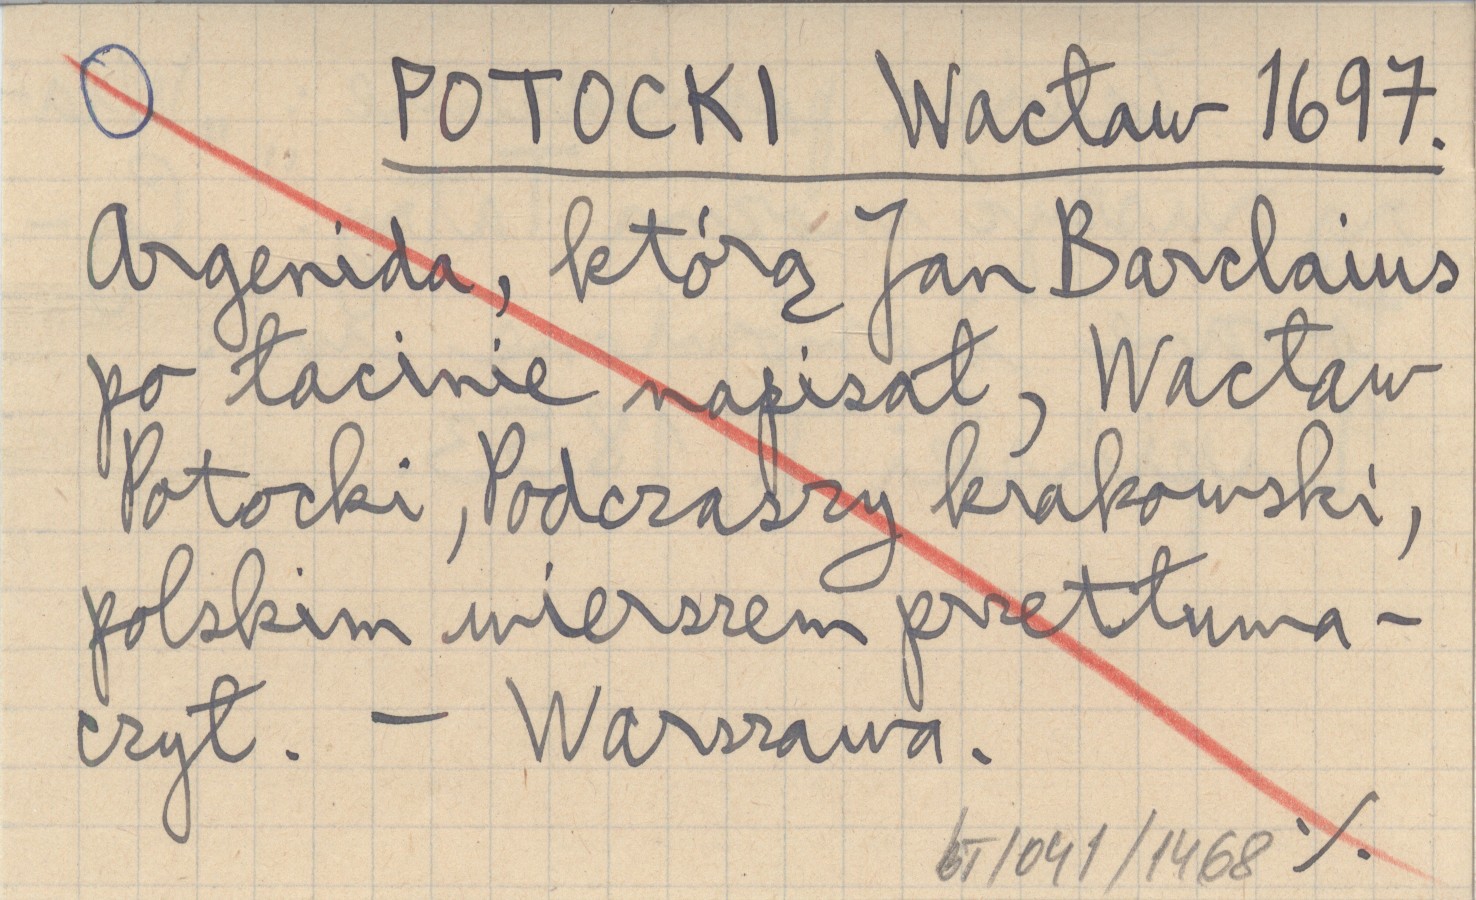 O POTOCKI Wacław 1697.
Argenida, którą Jan Barclaius
po łacinie napisał, Wacław
Potocki, Podczaszy krakowski,
polskim wierszem przetłuma-
czył. - Warszawa.
BT/041/1468 ·/.